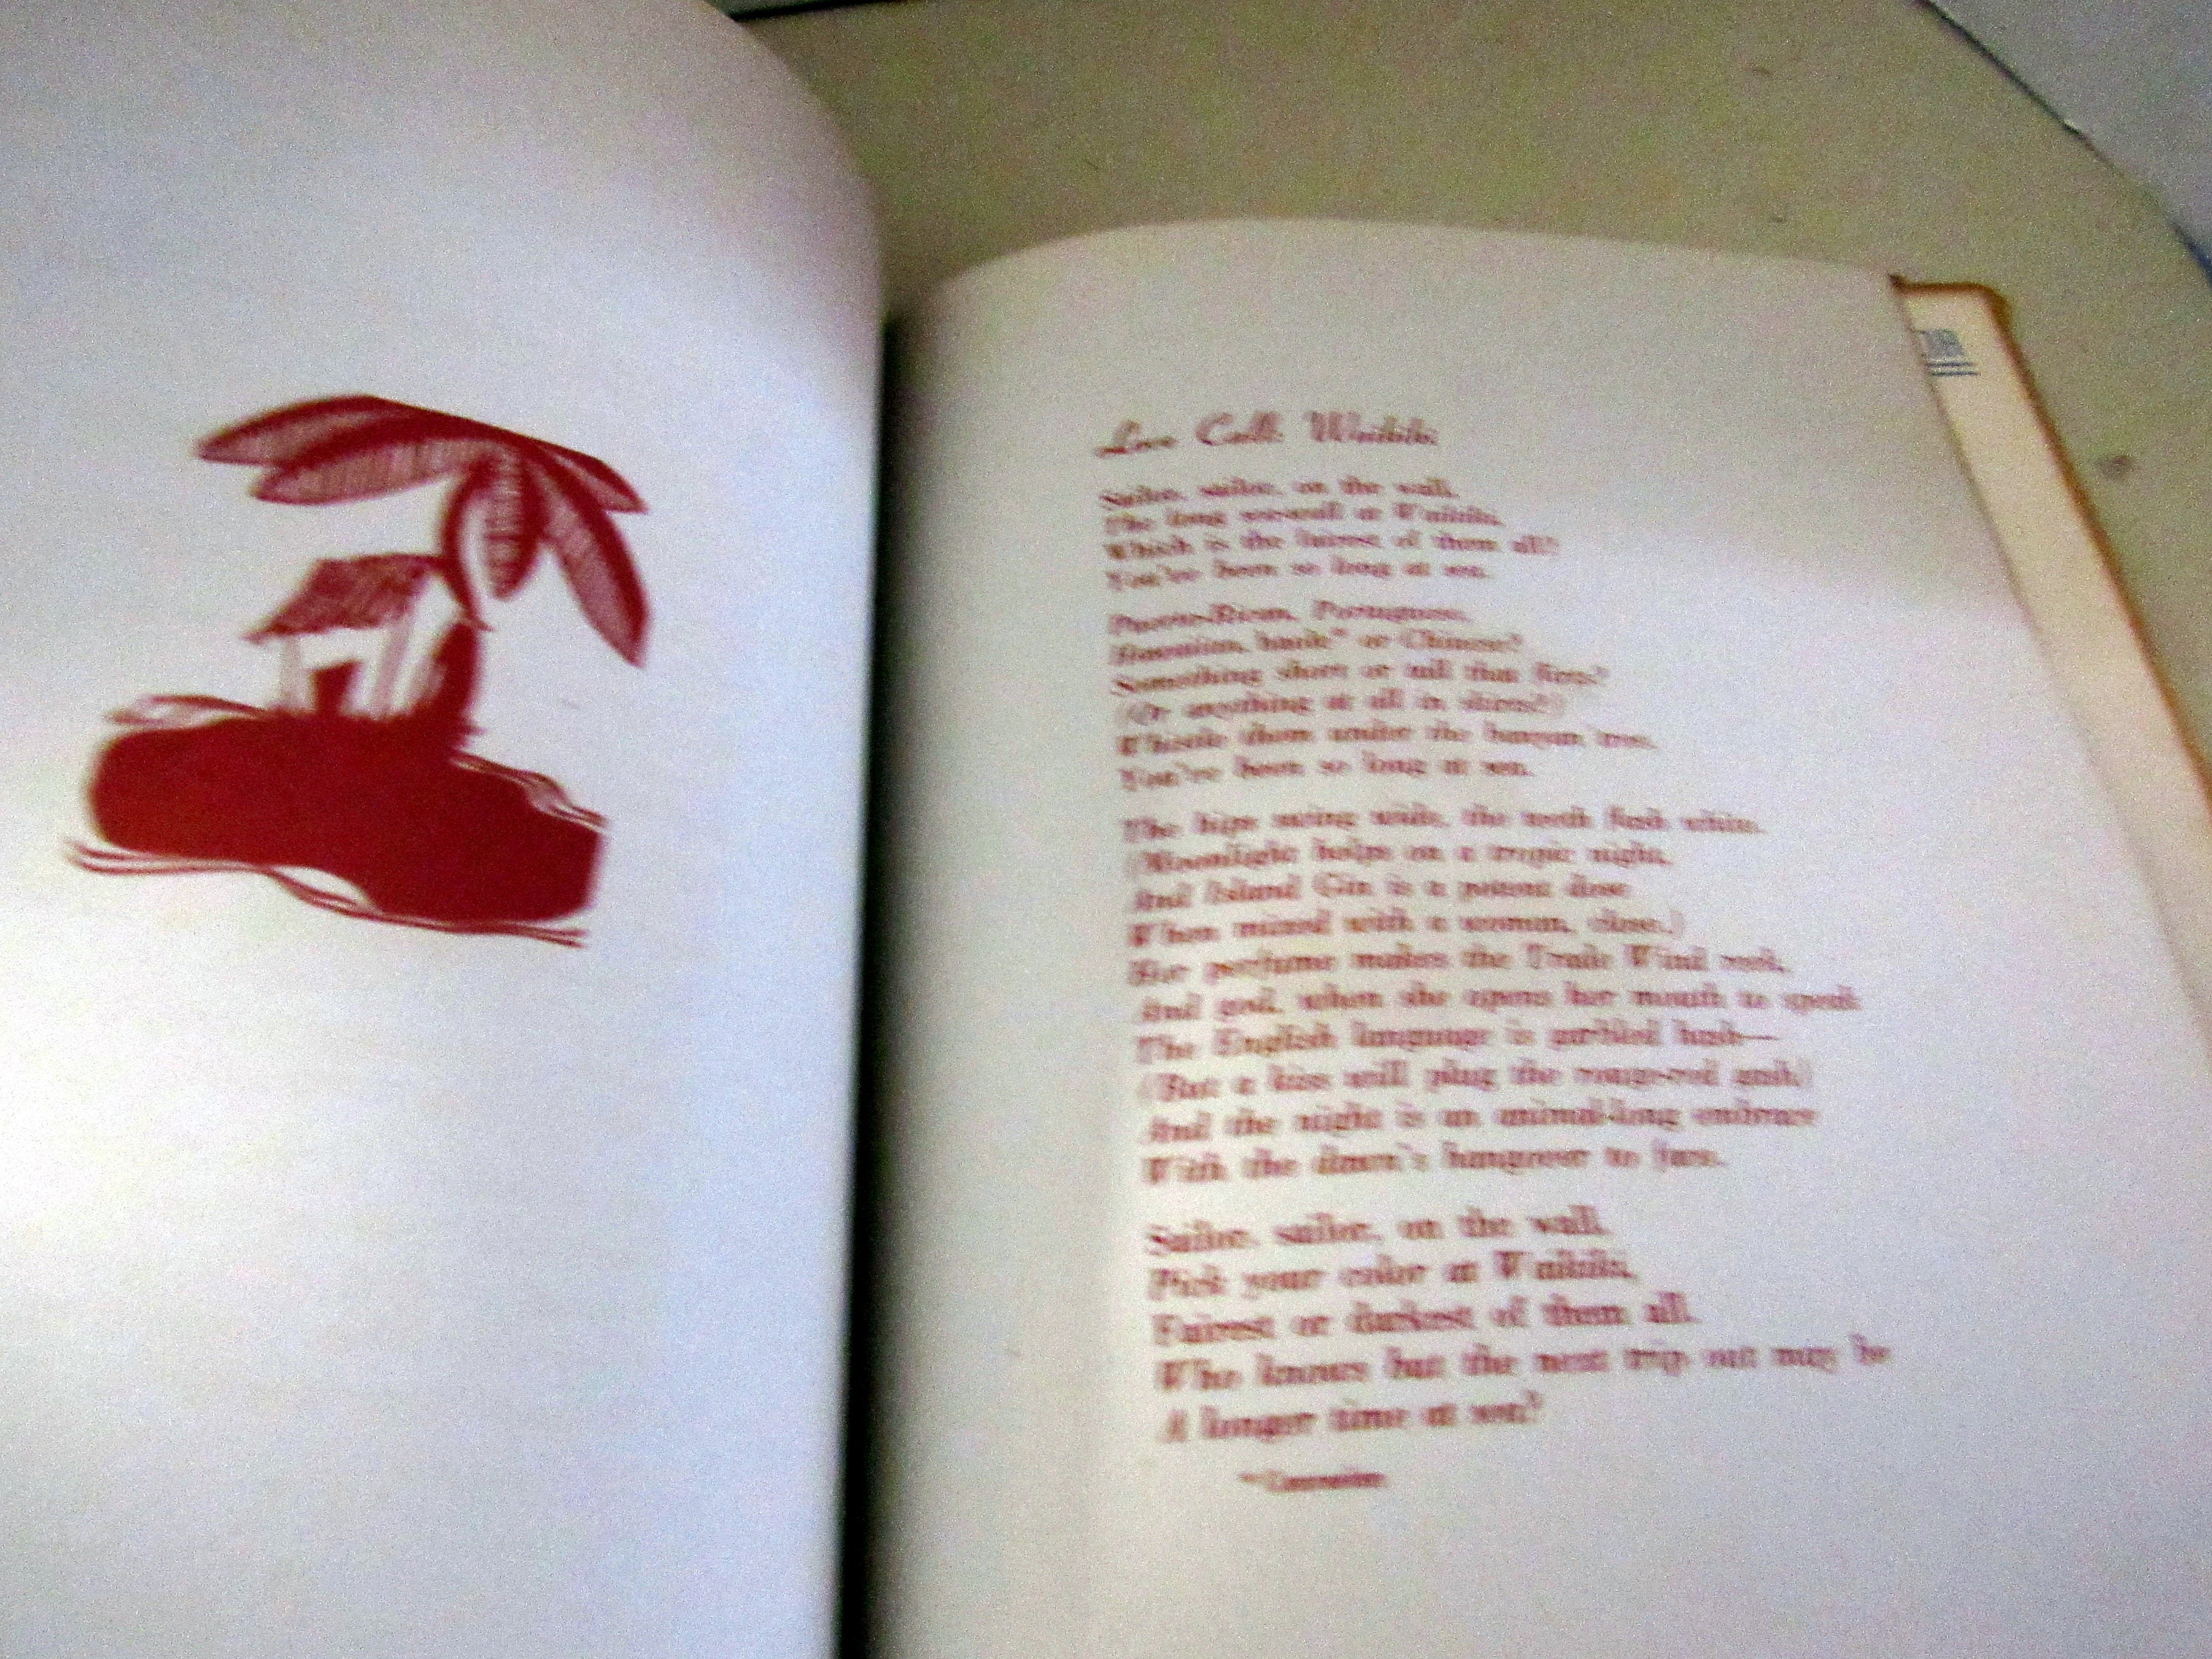 Love Call: Waikiki
Sailor, sailor, on the wall,
The long sea-wall at Waikiki,
Which is the fairest of them all?
You've been so long at sea.
Puerto-Rican, Portuguese,
Hawaiian, haole* or Chinese?
Something short or tall that flirts?
(Or anything at all in skirts?)
Whistle them under the banyan tree,
You've been so long at sea.
The hips swing wide, the teeth flash white,
(Moonlight helps on a tropic night,
And Island Gin is a potent dose
When mixed with a woman, close.)
Her perfume makes the Trade Wind reek,
And god, when she opens her mouth to speak
The English language is garbled hash—
(But a kiss will plug the rouge-red gash)
And the night is an animal-long embrace
With the dawn's hangover to face.
Sailor, sailor, on the wall,
Pick your color at Waikiki,
Fairest or darkest of them all.
Who knows but the next trip out may be
A longer time at sea?
*Caucasian